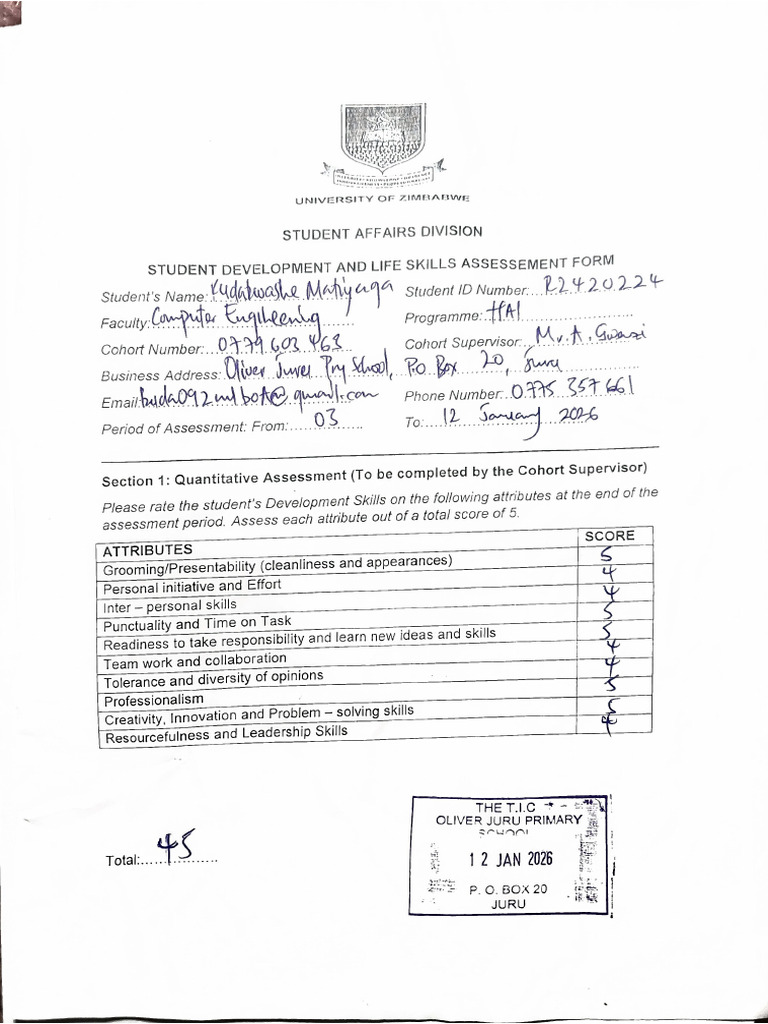 UNIVERSITY OF ZIMBABWE
STUDENT AFFAIRS DIVISION
STUDENT DEVELOPMENT AND LIFE SKILLS ASSESSEMENT FORM
Student's Name: Kudakwashe Matiyenga Student ID Number: R2420224
Faculty: Computer Engineering Programme: HAI
Cohort Number: 0779 603 463 Cohort Supervisor: Mr. A. Gwanzi
Business Address: Oliver Juru Pry School, P.O Box 20, Juru
Email: @gmail.com Phone Number: 0775 357 661
Period of Assessment: From: 03 To: 12 January 2026
Section 1: Quantitative Assessment (To be completed by the Cohort Supervisor)
Please rate the student's Development Skills on the following attributes at the end of the
assessment period. Assess each attribute out of a total score of 5.
ATTRIBUTES SCORE
Grooming/Presentability (cleanliness and appearances) 5
Personal initiative and Effort 4
Inter – personal skills 4
Punctuality and Time on Task 5
Readiness to take responsibility and learn new ideas and skills 5
Team work and collaboration 4
Tolerance and diversity of opinions 4
Professionalism 5
Creativity, Innovation and Problem – solving skills 5
Resourcefulness and Leadership Skills 4
Total: 45
THE T.I.C
OLIVER JURU PRIMARY
SCHOOL
12 JAN 2026
P. O. BOX 20
JURU